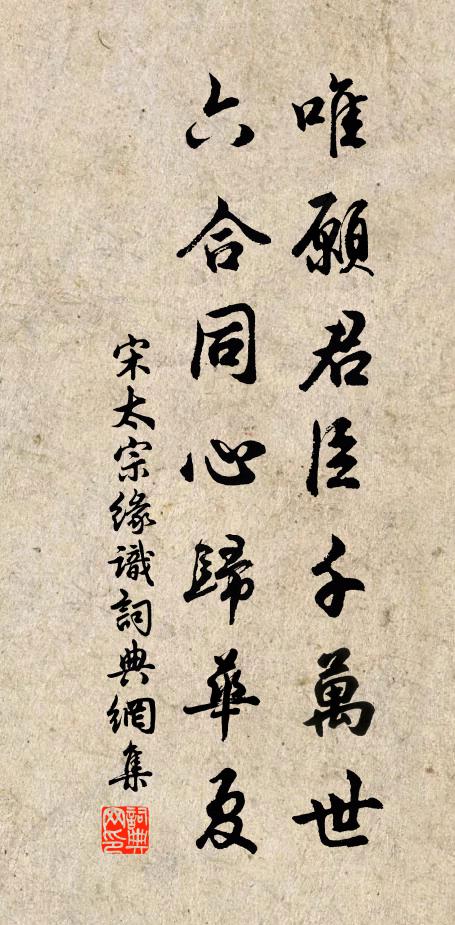 唯願君臣千萬世
六合同心歸華夏
宋太宗緣識詞典網集
詞典网印